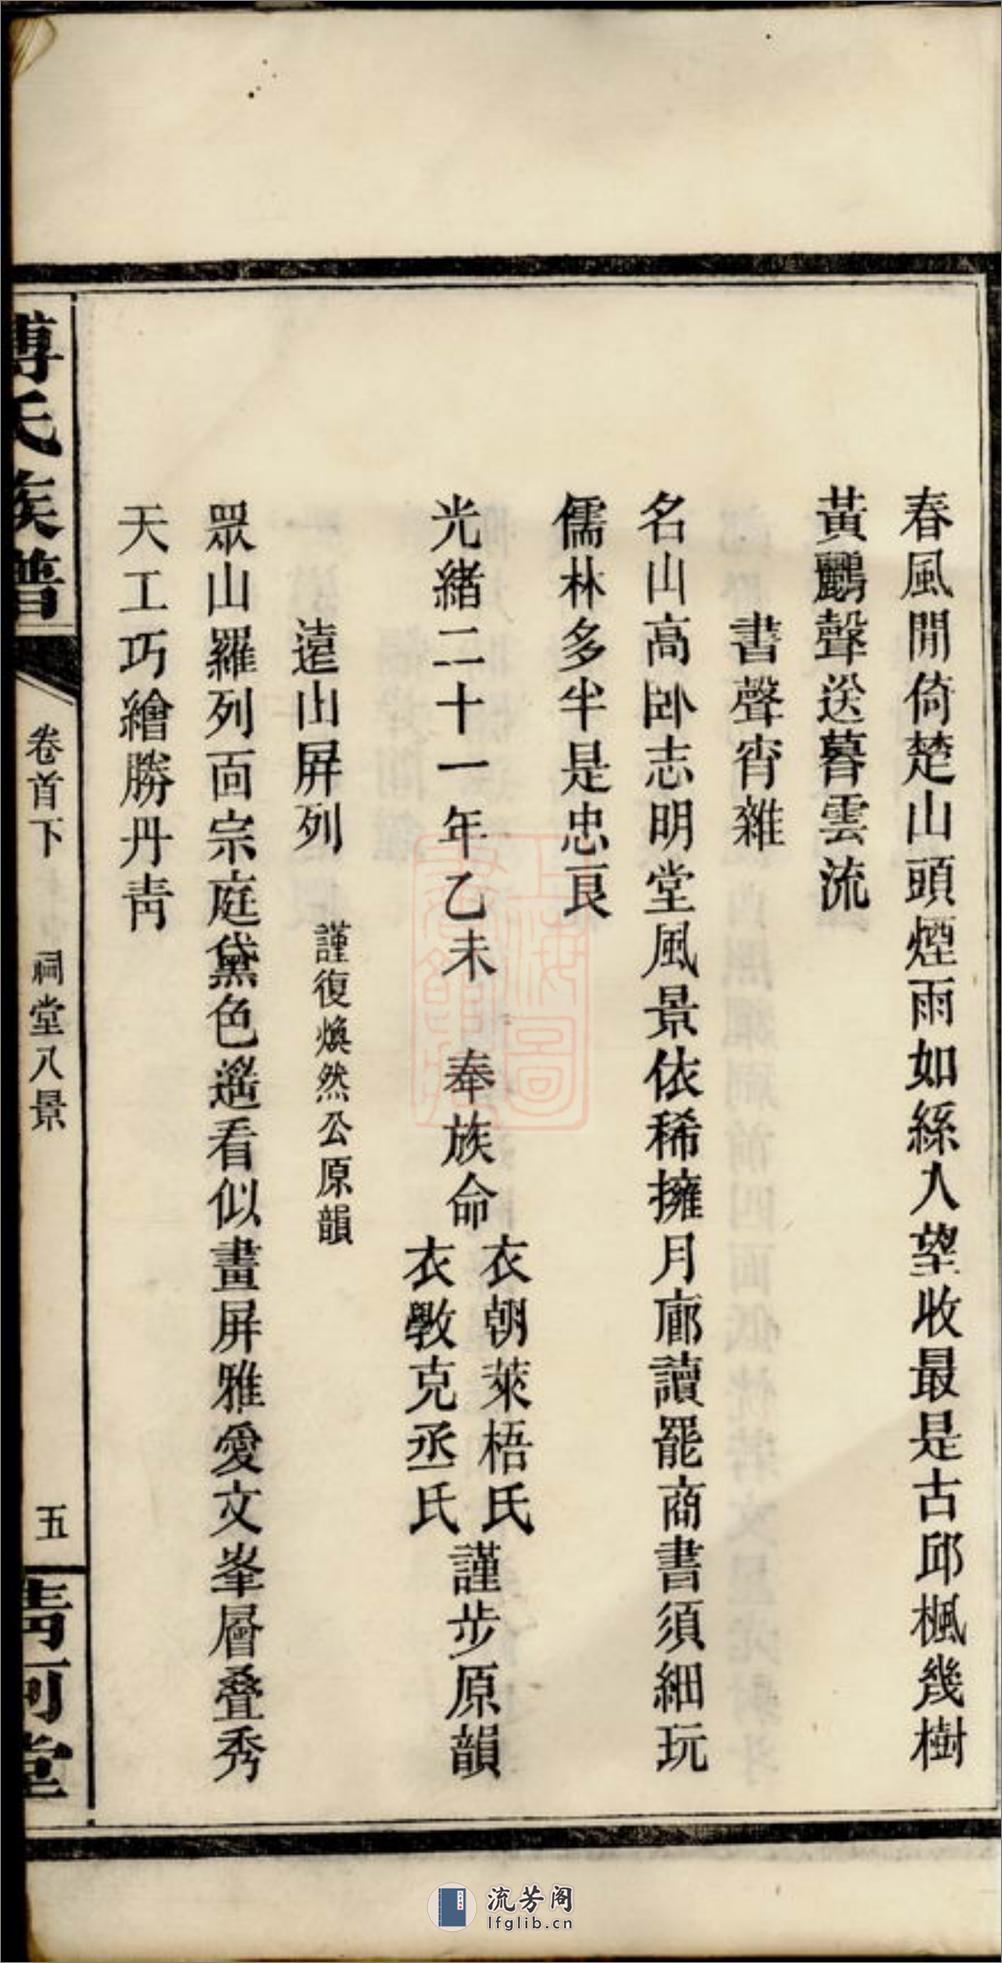 春風閒倚楚山頭煙雨如絲人望收最是古邱楓幾樹
黃鸝聲送暮雲流
書聲宵雜
名山高臥志明堂風景依稀擁月廊讀罷商書須細玩
儒林多半是忠良
光緒二十一年乙未　奉族命
衣朝萊梧氏
衣斆克丞氏
謹步原韻
遠山屏列　謹復煥然公原韻
眾山羅列面宗庭黛色遙看似畫屏雅愛文峯層叠秀
天工巧繪勝丹靑
傅氏族譜
卷首下　祠堂八景
五
靑河堂
流芳阁
lfglib.cn